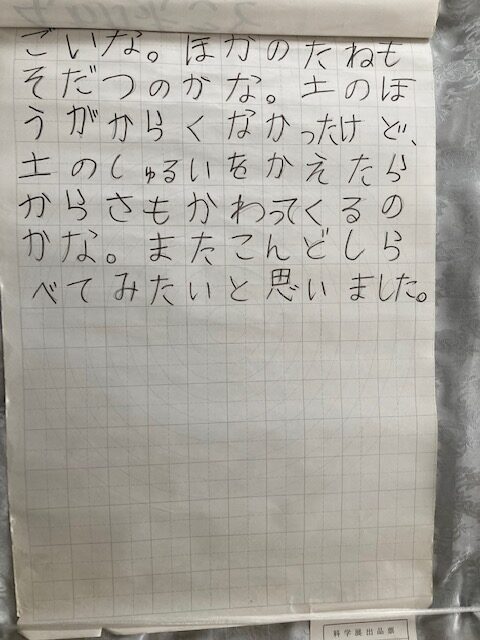 ごいな。ほかのたねも
そだつのかな。土のほ
うがからくなかったけど、
土のしゅるいをかえたら
からさもかわってくるの
かな。またこんどしら
べてみたいと思いました。
科学展出品票